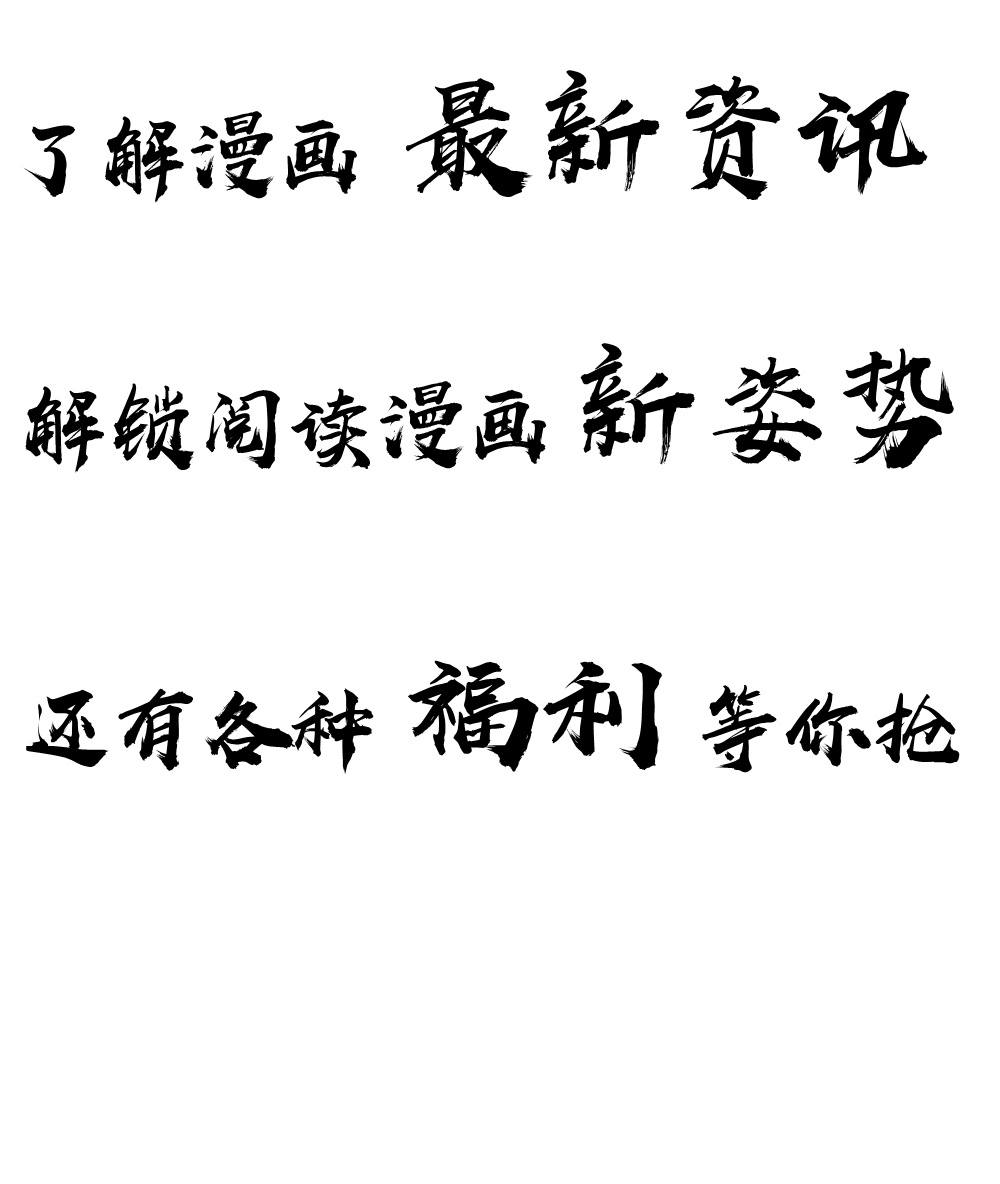 了解漫画 最新资讯
解锁阅读漫画新姿势
还有各种福利 等你抢